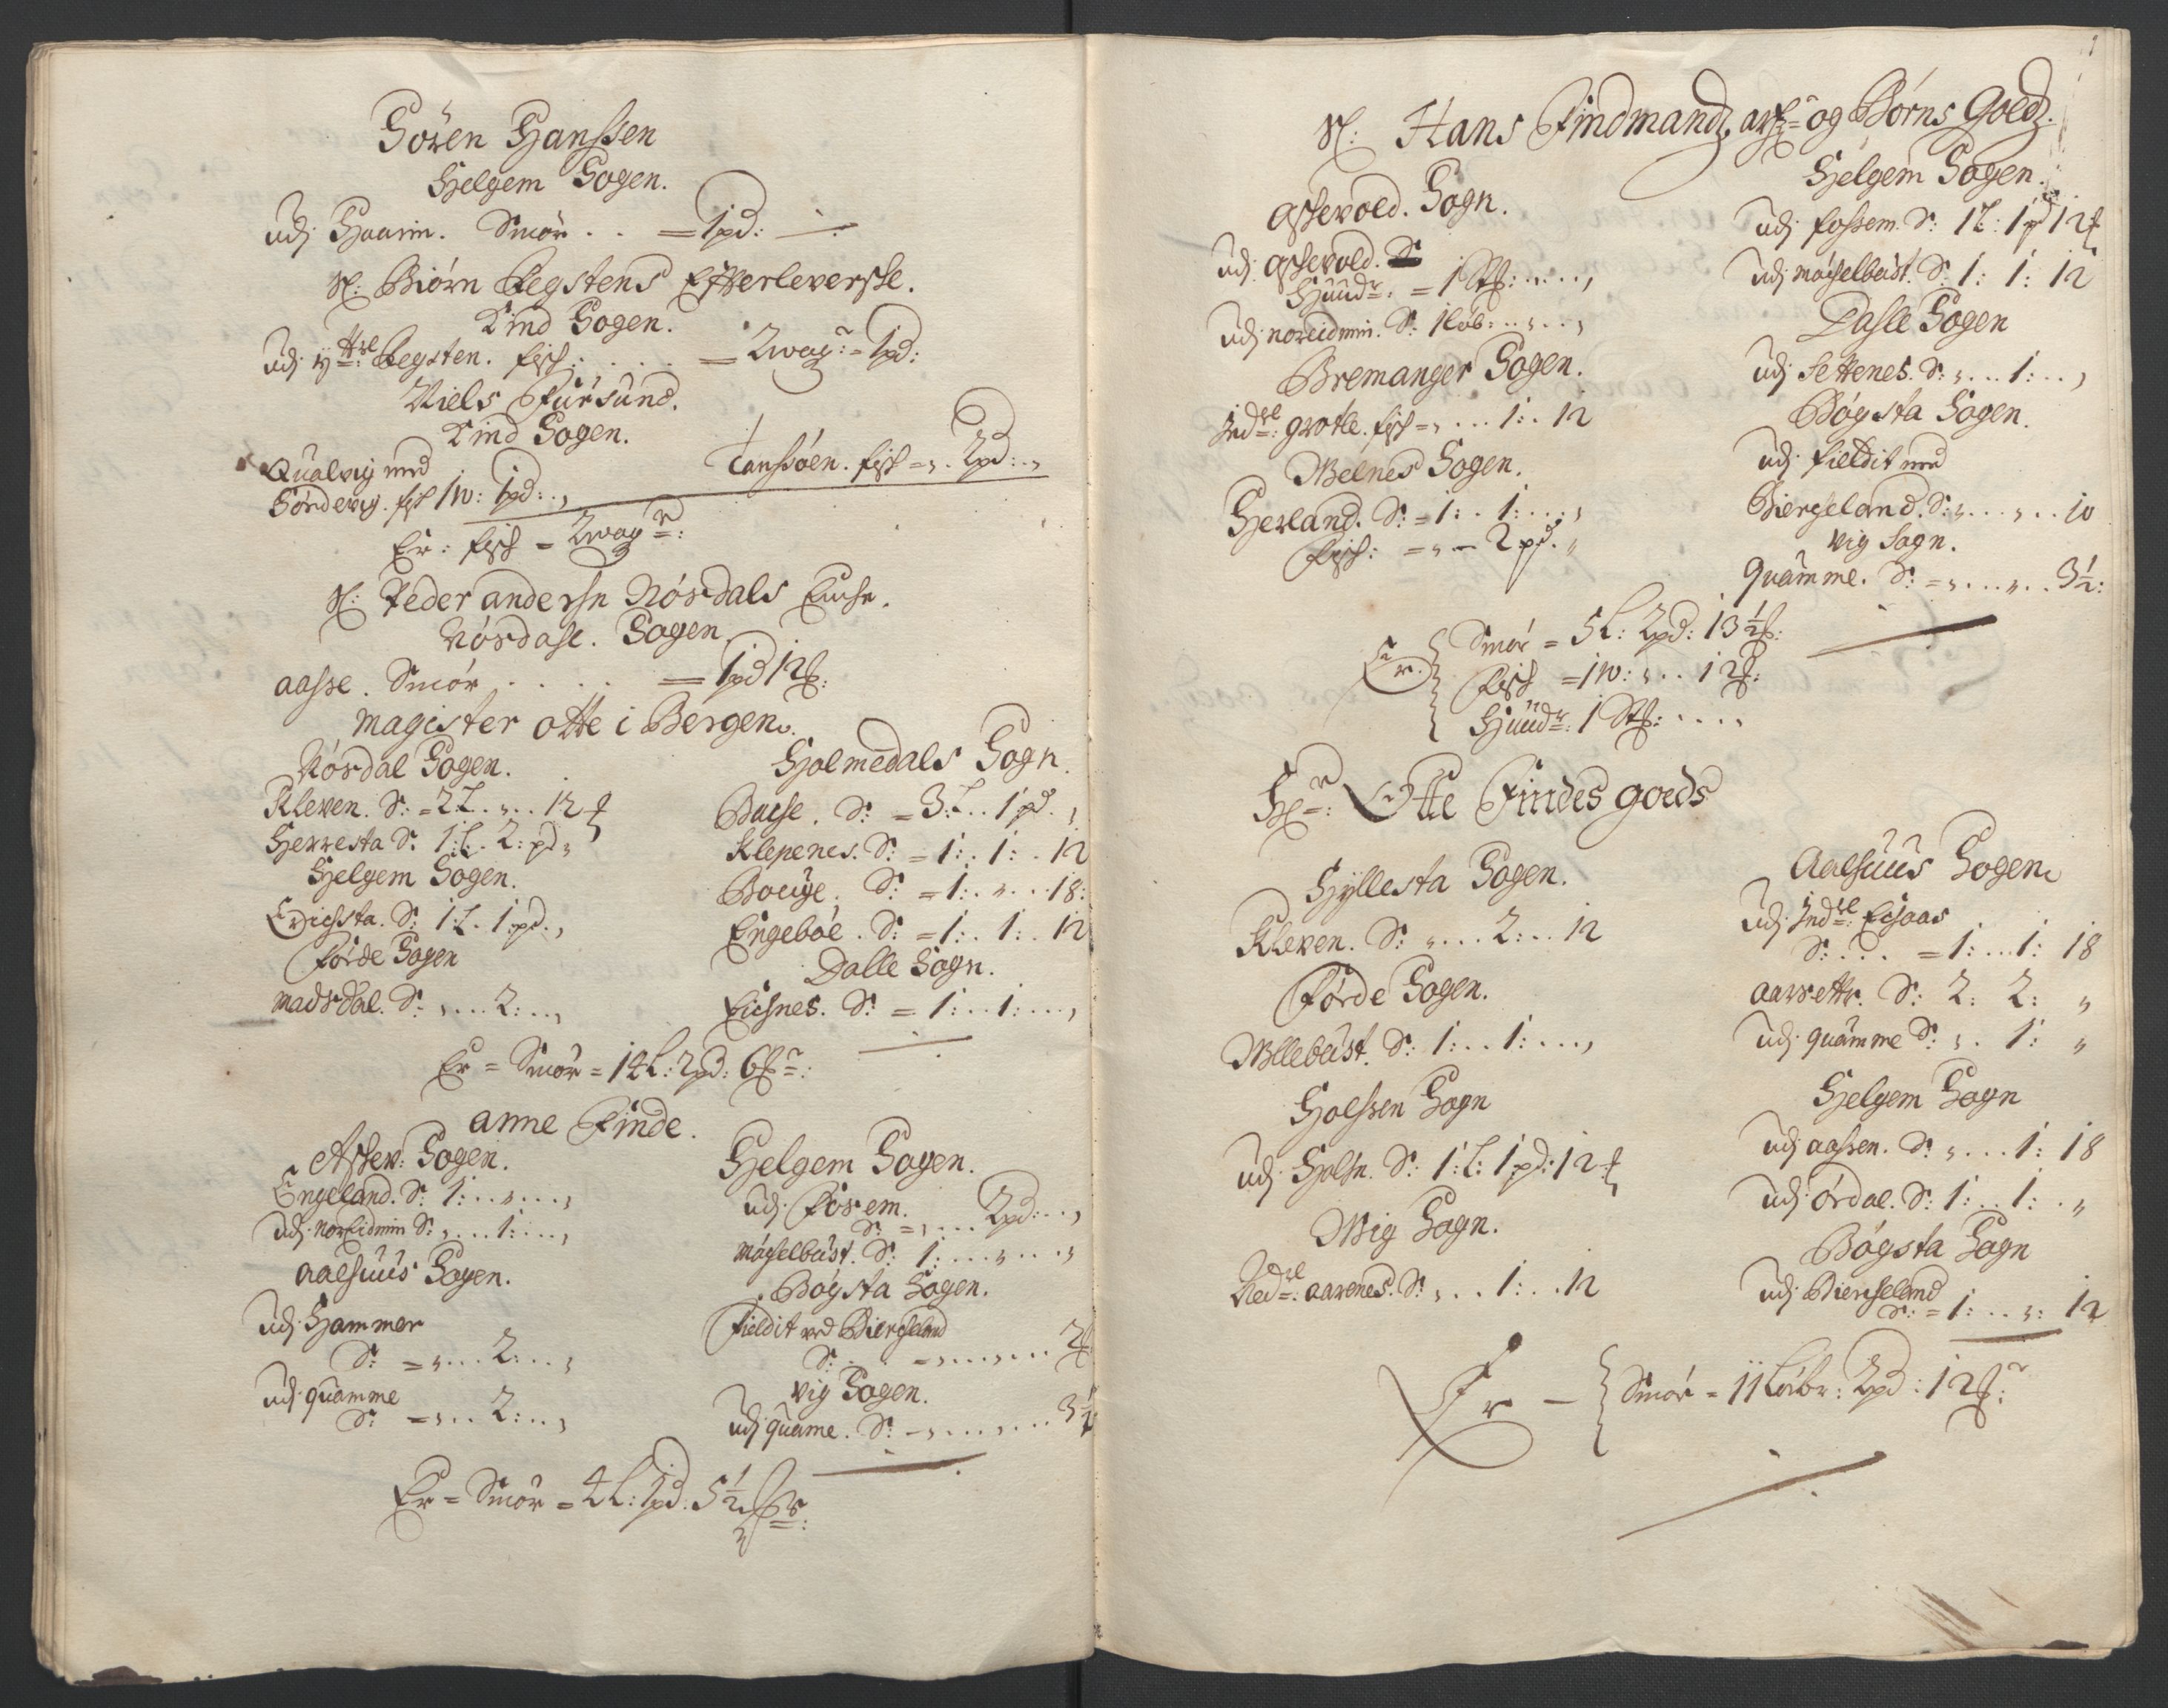 Sören Hanssen
Helgem Sogen.
Udj Haarin. Smör . . = 1 pd: —
Sl: Biörn Regstens Efterleversche.
Kind Sogen.
Udj ytt:re Regsten. fisch: . . . . = 2 wog:r = 1 pd:
Niels Fursund.
Kind Sogen.
Qualvig med
Sördevig. fisch 1 w: 1 pd: . ,
Tanssöen. fisch = ,, . 2 pd: . ,,
Er: fisch = 2 wog:r
Sl: Peder andersn Nösdals Enche.
Nösdahl. Sogen.
aasse. Smör . . . . = 1 pd 12 ℔:
magister otte i Bergen.
Nösdal Sogen.
Kleven. S: = 2 L. ,, . . 12 ℔
Herresta S: 1: L. 2: pd ,,
Helgem Sogen.
Erichsta. S: 1: L. 1: pd . ,
Förde Sogen
Madsdal. S: ,, . . . 2: . . ,
Holmedals Sogn.
Bache. S: = 3: L. . 1 pd. ,
Klepenes. S: = 1: . 1: . 12
Bouge. S: = 1: . ,, . . 18:
Engeböe. S: = 1: . 1: . 12
Dalle Sogn.
Eichnes. S: = 1: . . 1: . . . ,
Er = Smör = 14 L: 2 pd: 6 ℔:r
anne Finde.
Aschev: Sogen.
Engeland. S: 1: . . ,, . . . ,
Udj Noreidmin S: ,, . . . 1: . . . ,
Aalhuus Sogen.
Udj Hammer
S: = ,, . . . 2: . . . ,
Udj quamme
S: = ,, . . 2: . . . ,
Helgem Sogen.
udj Fosem.
S: = ,, . . . 2 pd: . . ,
möchelbust. S: 1: . . . ,, . . . ,,
Bögsta Sogen.
Fieldit ved Biergeland
S: . . = ,, . . . ,, . . . 2 ℔
Vig Sogen.
Udj quame. S: = ,, . . . ,, . . . 3 ½
Er = Smör = 4 L: 1 pd: 5 ½ ℔:r
Sl: Hans Findmandz arf:r og Börns Goedz.
Aschevold. Sogn.
Udj Aschevold. S
Huud:r = 1 Stk: . . . . ,
Udj noreidmin. S: 1 Löb: . . ,, . . ,
Bremanger Sogen.
Ind:re grotle. fisch = ,, . . . 1: . 12
Welnes Sogen.
Herland. S: = 1: . . 1: . . . ,
fisch: = ,, — 2 pd. ,,
Helgem Sogen.
Udj fossem. S: 1 L: 1 pd 12 ℔
Udj möchelbust. S: 1: 1: 12
Dasle Sogen
Udj Settenes. S: ,, . . . 1: . . ,
Bögsta Sogen.
Udj fieldit med
Biergeland. S: ,, . . . ,, . . 10
Vig Sogn.
Quamme. S: = ,, . . . ,, . . 3 ½:
Er. Smör = 5 L: 2 pd: 13 ½ ℔:
fisch = 1 w: ,, . . 12 ℔:
Huud:r 1 Stk: . . . .
H:r Otte Findes goeds
Hyllesta Sogen.
Kleven. S: ,, . . . 2: . . 12
Förde Sogen.
Wllebust. S: 1: . . 1: . . . ,
Holssen Sogn
Udj Holsn. S: 1: L: 1 pd: 12 ℔
Wig Sogn.
Ned:re aarenes. S: ,, . . 1: . . 12
Aalhuus Sogen
Udj Ind:re Eichaas
S: . . . = 1: . . . 1: 18
aarsettr. S: 2: 2: ,,
Udj quamme S: ,, . 1: ,,
Helgem Sogn
Udj aassen. S: ,, . . . 1: 18
Udj ördal. S: 1: . . 1: . ,,
Bögsta Sogn
Udj Biercheland
S: = 1: . . ,, : 12
Er — Smör = 11 Löbr: 2 pd: 12 ℔:r